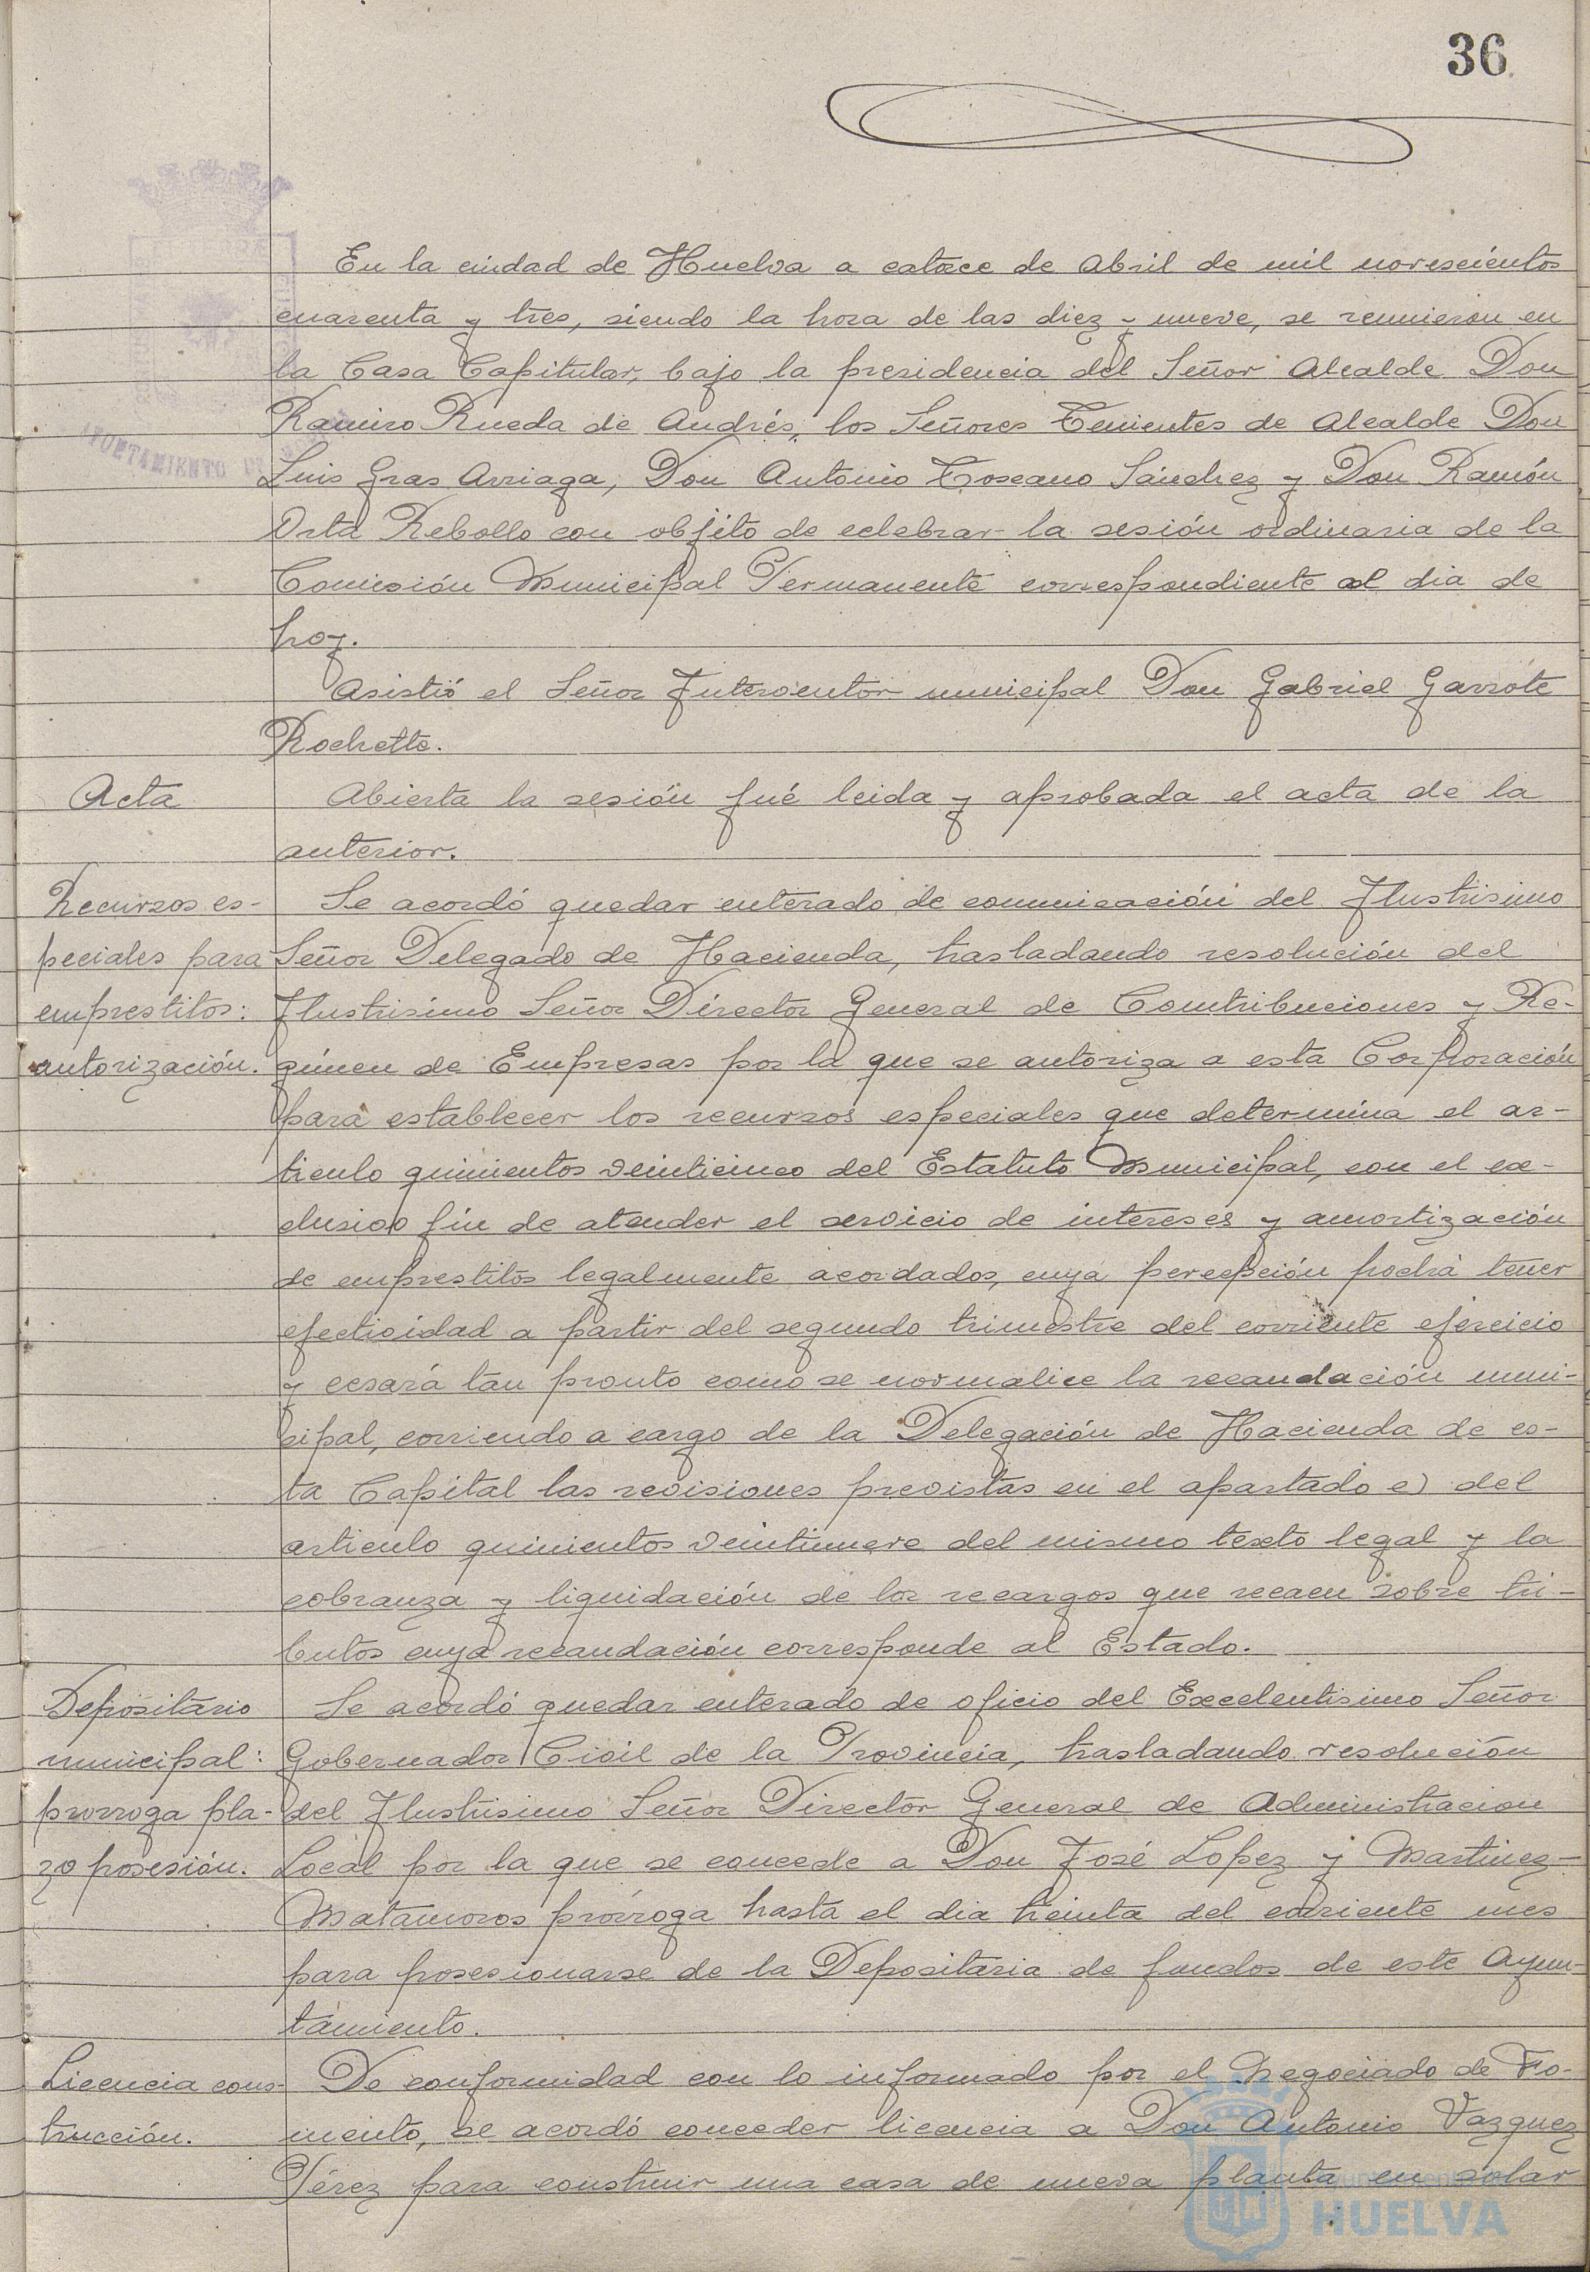 36
En la ciudad de Huelva a catorce de Abril de mil novescientos
cuarenta y tres, siendo la hora de las diez y nueve, se reunieron en
la Casa Capitular, bajo la presidencia del Señor Alcalde Don
Ramiro Rueda de Andrés, los Señores Tenientes de Alcalde Don
AYUNTAMIENTO DE
Luis Gras Arriaga, Don Antonio Toscano Sánchez y Don Ramón
Orta Rebollo con objeto de celebrar la sesión ordinaria de la
Comisión Municipal Permanente correspondiente al dia de
hoy.
Asistió el Señor Interventor municipal Don Gabriel Garrote
Rochette.
Acta
Abierta la sesión fué leida y aprobada el acta de la
anterior.
Recursos es-
peciales para
emprestitos:
autorización.
Se acordó quedar enterado de comunicación del Ilustrisimo
Señor Delegado de Hacienda, trasladando resolución del
Ilustrisimo Señor Director General de Contribuciones y Re-
gimen de Empresas por la que se autoriza a esta Corporación
para establecer los recursos especiales que determina el ar-
ticulo quinientos veinticinco del Estatuto Municipal, con el ex-
clusivo fin de atender el servicio de intereses y amortización
de emprestitos legalmente acordados, cuya percepción podrá tener
efectividad a partir del segundo trimestre del corriente ejercicio
y cesará tan pronto como se normalice la recaudación muni-
cipal, corriendo a cargo de la Delegación de Hacienda de es-
ta Capital las revisiones previstas en el apartado e) del
articulo quinientos veintinueve del mismo texto legal y la
cobranza y liquidación de los recargos que recaen sobre tri-
butos cuya recaudación corresponde al Estado.
Depositario
municipal:
prorroga pla-
zo posesión.
Se acordó quedar enterado de oficio del Excelentisimo Señor
Gobernador Civil de la Provincia, trasladando resolución
del Ilustrisimo Señor Director General de Administracion
Local por la que se concede a Don José Lopez y Martinez-
Matamoros prórroga hasta el dia treinta del corriente mes
para posesionarse de la Depositaria de fondos de este Ayun-
tamiento.
Licencia cons-
trucción.
De conformidad con lo informado por el Negociado de Fo-
mento, se acordó conceder licencia a Don Antonio Vazquez
Pérez para construir una casa de nueva planta en solar
Ayuntamiento
HUELVA